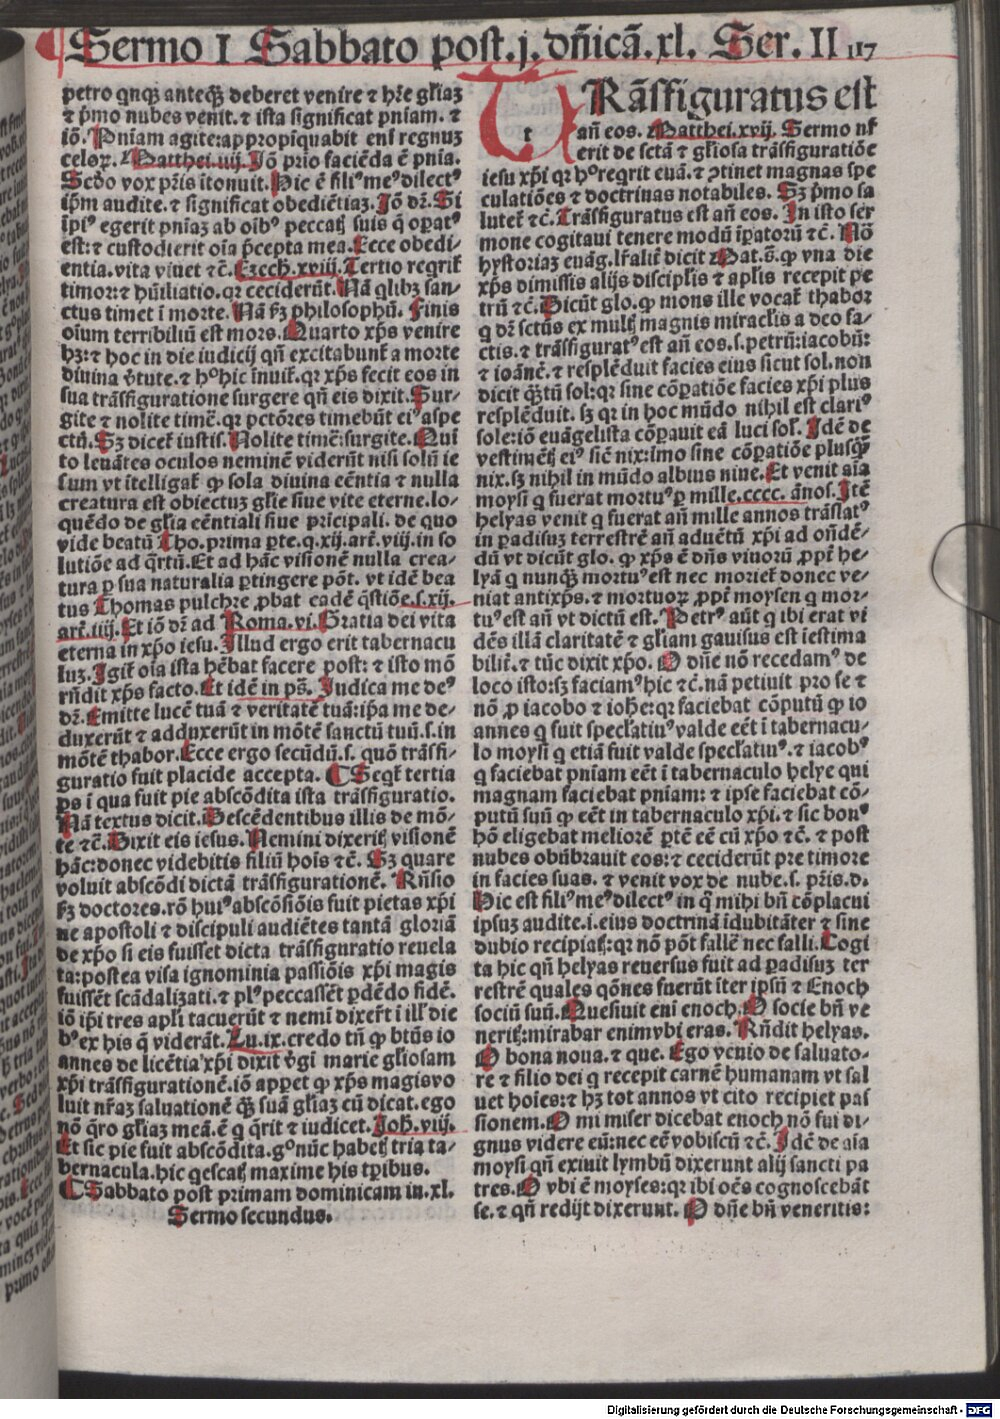 Sermo I Sabbato post .j. dñicã .xl. Ser. II 117
petro qnqꝫ anteqꝫ̃ deberet venire ⁊ hr̃e gl̃iaꝫ
⁊ p̃mo nubes venit. ⁊ ista significat pniam. ⁊
iõ. Pniam agite: appropiquabit eni regnuꝫ
celoꝝ. Matthei .iiij. Iõ prio faciẽda ẽ pnia.
Scd̃o vox pr̃is itonuit. Hic ẽ fili⁹ me⁹ dilect⁹
ip̃m audite. ⁊ significat obediẽtiaꝫ. Iõ dꝛ̃. Si
ip̃i⁹ egerit pniaꝫ ab oib⁹ peccatꝭ suis q̃ opat⁹
est: ⁊ custodierit oia p̃cepta mea. Ecce obedi-
entia. vita viuet ⁊ c̃. Ezech. xviij. Tertio reqrit̃
timor: ⁊ hũiliatio. qꝛ ceciderũt. Nã qlibꝫ san-
ctus timet i morte. Nã ẜm philosophũ. Finis
oium terribiliũ est mors. Quarto xp̃s venire
hꝫ: ⁊ hoc in die iudicij qñ excitabunt̃ a morte
diuina v̓tute. ⁊ h° hic inuit̃. qꝛ xp̃s fecit eos in
sua trãsfiguratione surgere qñ eis dixit. Sur-
gite ⁊ nolite timẽ. qꝛ pctõres timebũt ei⁹ aspe
ctũ. Sꝫ dicet̃ iustis. Nolite timẽ: surgite. Qui
to leuãtes oculos neminẽ viderũt nisi solũ ie
sum vt itelligat̃ ꝙ sola diuina eẽntia ⁊ nulla
creatura est obiectuꝫ gl̃ie siue vite eterne. lo-
quẽdo de gl̃ia eẽntiali siue pricipali. de quo
vide beatũ Tho. prima ꝑte. q. xij. art̃. viij. in so
lutiõe ad q̃rtũ. Et ad hãc visionẽ nulla crea-
tura ꝑ sua naturalia ꝑtingere põt. vt idẽ bea
tus Thomas pulchre ꝓbat eadẽ q̃stiõe. s. xij.
art̃. iiij. Et iõ dꝛ̃ ad Roma. vi. Gratia dei vita
eterna in xp̃o iesu. Illud ergo erit tabernacu
luꝫ. Igit̃ oia ista hẽbat facere post: ⁊ isto mõ
rñdit xp̃s facto. Et idẽ in ps̃. Iudica me de⁹
dꝛ̃. Emitte lucẽ tuã ⁊ veritatẽ tuã: ip̃a me de-
duxerũt ⁊ adduxerũt in mõtẽ sanctũ tuũ. s. in
mõtẽ thabor. Ecce ergo secũdũ. s. quõ trãsfi-
guratio fuit placide accepta. ¶ Seqt̃ tertia
ps i qua fuit pie abscõdita ista trãsfiguratio.
Nã textus dicit. Descẽdentibus illis de mõ-
te ⁊ c̃. Dixit eis iesus. Nemini dixeritꝭ visionẽ
hãc: donec videbitis filiũ hois ⁊ c̃. Sꝫ quare
voluit abscõdi dictã trãsfigurationẽ. Rñsio
ẜm doctores. rõ hui⁹ abscõsiõis fuit pietas xp̃i
ne apostoli ⁊ discipuli audiẽtes tantã gloriã
de xp̃o si eis fuisset dicta trãsfiguratio reuela
ta: postea visa ignominia passiõis xp̃i magis
fuissẽt scãdalizati. ⁊ pl⁹ peccassẽt ꝑdẽdo fidẽ.
iõ ip̃i tres apl̃i tacuerũt ⁊ nemi dixer̃t i ill̃ die
b⁹ ex his q̃ viderãt. Lu. ix. credo tñ ꝙ btũs io
annes de licẽtia xp̃i dixit v̓gi marie gl̃iosam
xp̃i trãsfigurationẽ. iõ apꝑet ꝙ xp̃s magis vo
luit nr̃aꝫ saluationẽ qꝫ̃ suã gl̃iaꝫ cũ dicat. ego
nõ q̃ro gl̃iaꝫ meã. ẽ q̃ q̃rit ⁊ iudicet. Ioh̃. viij.
Et sic pie fuit abscõdita. g° nũc habetꝭ tria ta-
bernacula. hic q̃escatꝭ maxime his tꝑibus.
¶ Sabbato post primam dominicam in. xl.
Sermo secundus.
TRãsfiguratus est
añ eos. Matthei. xvij. Sermo nr̃
erit de sctã ⁊ gl̃iosa trãsfiguratiõe
iesu xp̃i qꝛ h° reqrit euã. ⁊ ꝯtinet magnas spe
culatiões ⁊ doctrinas notabiles. Sꝫ p̃mo sa
lutet̃ ⁊ c̃. Trãsfiguratus est añ eos. In isto ser
mone cogitaui tenere modũ ip̃atorũ ⁊ c̃. Nõ
hystoriaꝫ euãg. lr̃alit̃ dicit Mat. s̃. ꝙ vna die
xp̃s dimissis alijs disciplis ⁊ aplis recepit pe
trũ ⁊ c̃. Dicũt glo. ꝙ mons ille vocat̃ thabor
q̃ dꝛ̃ sctũs ex multꝭ magnis miraclis a deo fa-
ctis. ⁊ trãsfigurat⁹ est añ eos. s. petrũ: iacobũ:
⁊ ioãnẽ. ⁊ resplẽduit facies eius sicut sol. non
dicit qꝫ̃tũ sol: qꝛ sine cõꝑatiõe facies xp̃i plus
resplẽduit. sꝫ qꝛ in hoc mũdo nihil est clari⁹
sole: iõ euãgelista cõꝑauit eã luci sol̃. Idẽ de
vestimẽtꝭ ei⁹ siẽ nix: imo sine cõꝑatiõe plusqꝫ̃
nix. sꝫ nihil in mũdo albius niue. Et venit aia
moysi q̃ fuerat mortu⁹ ꝑ mille. cccc. ãnos. Itẽ
helyas venit q̃ fuerat añ mille annos trãslat⁹
in ꝑadisuꝫ terrestrẽ añ aduẽtũ xp̃i ad oñdẽ-
dũ vt dicũt glo. ꝙ xp̃s ẽ dñs viuorũ ꝓpt̃ he-
lyã q̃ nunqꝫ̃ mortu⁹ est nec moriet̃ donec ve-
niat antixp̃s. ⁊ mortuoꝝ ꝓpt̃ moysen q̃ mor-
tu⁹ est añ vt dictũ est. Petr⁹ aũt q̃ ibi erat vi
dẽs illã claritatẽ ⁊ gl̃iam gauisus est iestima
bilit̃. ⁊ tũc dixit xp̃o. O dñe nõ recedam⁹ de
loco isto: sꝫ faciam⁹ hic ⁊ c̃. nã petiuit pro se ⁊
nõ ꝓ iacobo ⁊ ioh̃e: qꝛ faciebat cõputũ ꝙ io
annes q̃ fuit speclatiu⁹ valde eẽt i tabernacu-
lo moysi q̃ etiã fuit valde speclatiu⁹. ⁊ iacob⁹
q̃ faciebat pniam eẽt i tabernaculo helye qui
magnam faciebat pniam: ⁊ ipse faciebat cõ-
putũ suũ ꝙ eẽt in tabernaculo xp̃i. ⁊ sic bon⁹
hõ eligebat meliorẽ ꝑtẽ eẽ cũ xp̃o ⁊ c̃. ⁊ post
nubes obũbrauit eos: ⁊ ceciderũt pre timore
in facies suas. ⁊ venit vox de nube. s. pr̃is. d.
Hic est fili⁹ me⁹ dilect⁹ in q̃ mihi bñ cõplacui
ipsuꝫ audite. i. eius doctrinã idubitãter ⁊ sine
dubio recipiatꝭ: qꝛ nõ põt fallẽ nec falli. Cogi
ta hic qñ helyas reuersus fuit ad ꝑadisuꝫ ter
restrẽ quales q̃ões fuerũt iter ipsũ ⁊ Enoch
sociũ suũ. Quesiuit eni enoch. O socie bñ ve
neritꝭ: mirabar enim vbi eras. Rñdit helyas.
O bona noua. ⁊ que. Ego venio de saluato-
re ⁊ filio dei q̃ recepit carnẽ humanam vt sal
uet hoies: ⁊ hꝫ tot annos vt cito recipiet pas
sionem. O mi miser dicebat enoch nõ fui di-
gnus videre eũ: nec eẽ vobiscũ ⁊ c̃. Idẽ de aia
moysi qñ exiuit lymbũ dixerunt alij sancti pa
tres. O vbi ẽ moyses: qꝛ ibi oẽs cognoscebãt
se. ⁊ qñ redijt dixerunt. O dñe bñ veneritis:
Digitalisierung gefördert durch die Deutsche Forschungsgemeinschaft - DFG